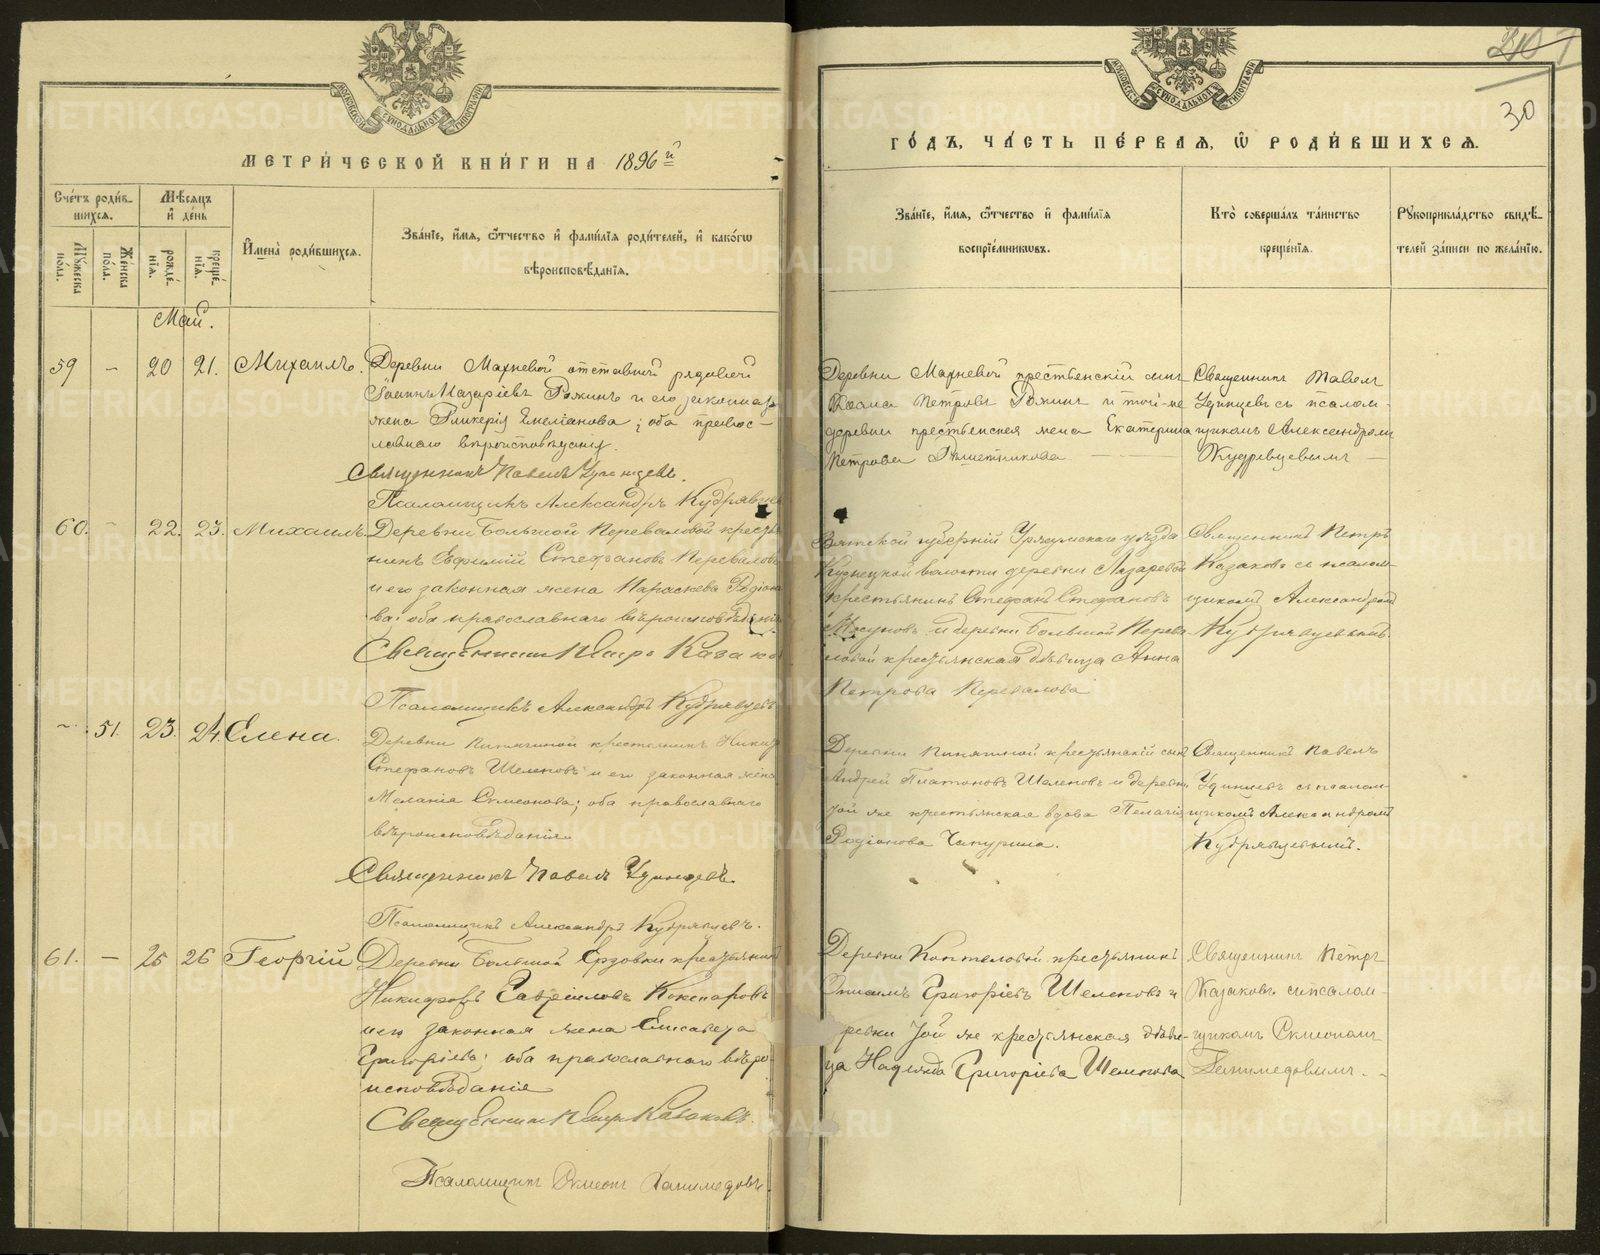 МОСКОВСКОЙ СУНОДАЛЬНОЙ ТИПОГРАФІИ
МЕТРИ́ЧЕСКОЙ КНИ́ГИ НА 1896й
Сче́тъ роди́в-
шихся.
Мѣ́сяцъ
и҆ де́нь
Мꙋжеска
по́ла.
Же́нска
по́ла.
рожде́-
нїя.
креще́-
нїя.
И҆мена̀ роди́вшихся.
Зва́нїе, и҆́мя, ѻ҆́тчество и҆ фами́лїя роди́телей, и҆ како́гѡ
вѣроисповѣ́данїя.
Май.
59 - 20 21. Михаилъ.
Деревни Махневой отставной рядовой
Іоаннъ Назаріевъ Рожинъ и его законная
жена Гликерія Емеліанова; оба правос-
лавнаго вѣроисповѣданія.
Священникъ Павелъ Удинцевъ.
Псаломщикъ Александръ Кудрявцев
60. - 22. 23. Михаилъ.
Деревни Большой Переваловой кресть
нинъ Евфимій Стефановъ Переваловъ
и его законная жена Параскева Родіоно
ва; оба православнаго вѣроисповѣданія
Священникъ Петръ Казаков
Псаломщикъ Александръ Кудрявцевъ
- 51. 23. 24. Елена.
Деревни крестьянинъ Никиф
Стефановъ Шелеповъ и его законная жена
Меланія Симеонова; оба православнаго
вѣроисповѣданія
Священникъ Павелъ Удинцевъ.
Псаломщикъ Александръ Кудрявцевъ.
61. - 25 26 Георгій
Деревни Большой Ерзовки крестьянинъ
Никифоръ Гавріиловъ
и его законная жена Елисавета
Григоріева; оба православнаго вѣро-
исповѣданія
Священникъ Петръ Казаковъ.
Псаломщикъ Симеонъ Ганимедовъ.
30
МОСКОВСКОЙ СУНОДАЛЬНОЙ ТИПОГРАФІИ
ГО́ДЪ, ЧА́СТЬ ПЕ́РВАЯ, Ѡ҆ РОДИ́ВШИХСЯ.
Зва́нїе, и҆́мя, ѻ҆́тчество и҆ фами́лїя
воспрїе́мникѡвъ.
Кто̀ соверша́лъ та́инство
креще́нїя.
Рꙋкоприкла́дство свидѣ́-
телей за́писи по жела́нїю.
Деревни Махневой крестьянскій сынъ
Петровъ Рожинъ и той-же
деревни крестьянская жена Екатерина
Петрова Рѣшетникова
Священникъ Павелъ
Удинцевъ съ псалом-
щикомъ Александромъ
Кудрявцевымъ
Вятской губерніи Уржумскаго уѣзда
Кузнецкой волости деревни Лазаревой
крестьянинъ Стефанъ Стефановъ
Мосуновъ и деревни Большой Перева
ловой крестьянская дѣвица Анна
Петрова Перевалова
Священникъ Петръ
Казаковъ съ псалом-
щикомъ Александромъ
Кудрявцевымъ.
Деревни крестьянскій сынъ
Андрей Платоновъ Шелеповъ и деревни
той же крестьянская вдова Пелагія
Родіонова Чапурина.
Священникъ Павелъ
Удинцевъ съ псалом-
щикомъ Александромъ
Кудрявцевымъ.
Деревни Коптеловой крестьянинъ
Григоріевъ Шелеповъ и
ревни той же крестьянская дѣви-
ца Надежда Григоріева Шелепова
Священникъ Петръ
Казаковъ съ псалом-
щикомъ Симеономъ
Ганимедовымъ.
METRIKI.GASO-URAL.RU